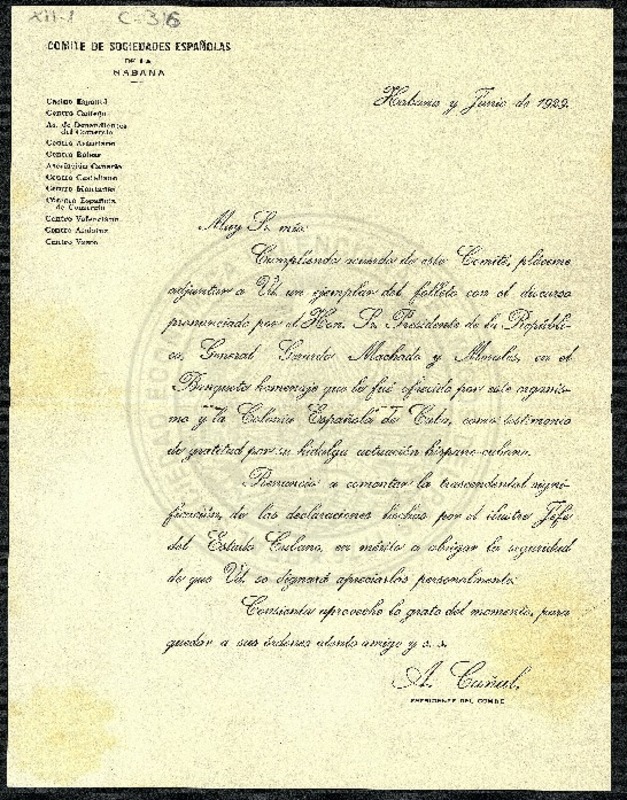 XII-1 C-316
COMITE DE SOCIEDADES ESPAÑOLAS
DE LA
HABANA
Casino Español
Centro Gallego
As. de Dependientes
del Comercio
Centro Asturiano
Centro Balear
Asociación Canaria
Centro Castellano
Centro Montañés
Cámara Española
de Comercio
Centro Valenciano
Centro Andaluz
Centro Vasco
Habana y Junio de 1929.
Muy Sr. mío:
Cumpliendo acuerdo de este Comité, pláceme
adjuntar a Vd. un ejemplar del folleto con el discurso
pronunciado por el Hon. Sr. Presidente de la Repúbli-
ca, General Gerardo Machado y Morales, en el
Banquete homenaje que le fué ofrecido por este organis-
mo y la Colonia Española de Cuba, como testimonio
de gratitud por su hidalga actuación hispano-cubana.
Renuncio a comentar la trascendental signi-
ficación, de las declaraciones hechas por el ilustre Jefe
del Estado Cubano, en mérito a abrigar la seguridad
de que Vd. se dignará apreciarlas personalmente.
Consienta aproveche lo grato del momento, para
quedar a sus órdenes atento amigo y s. s.
A. Cuñal,
PRESIDENTE DEL COMITE